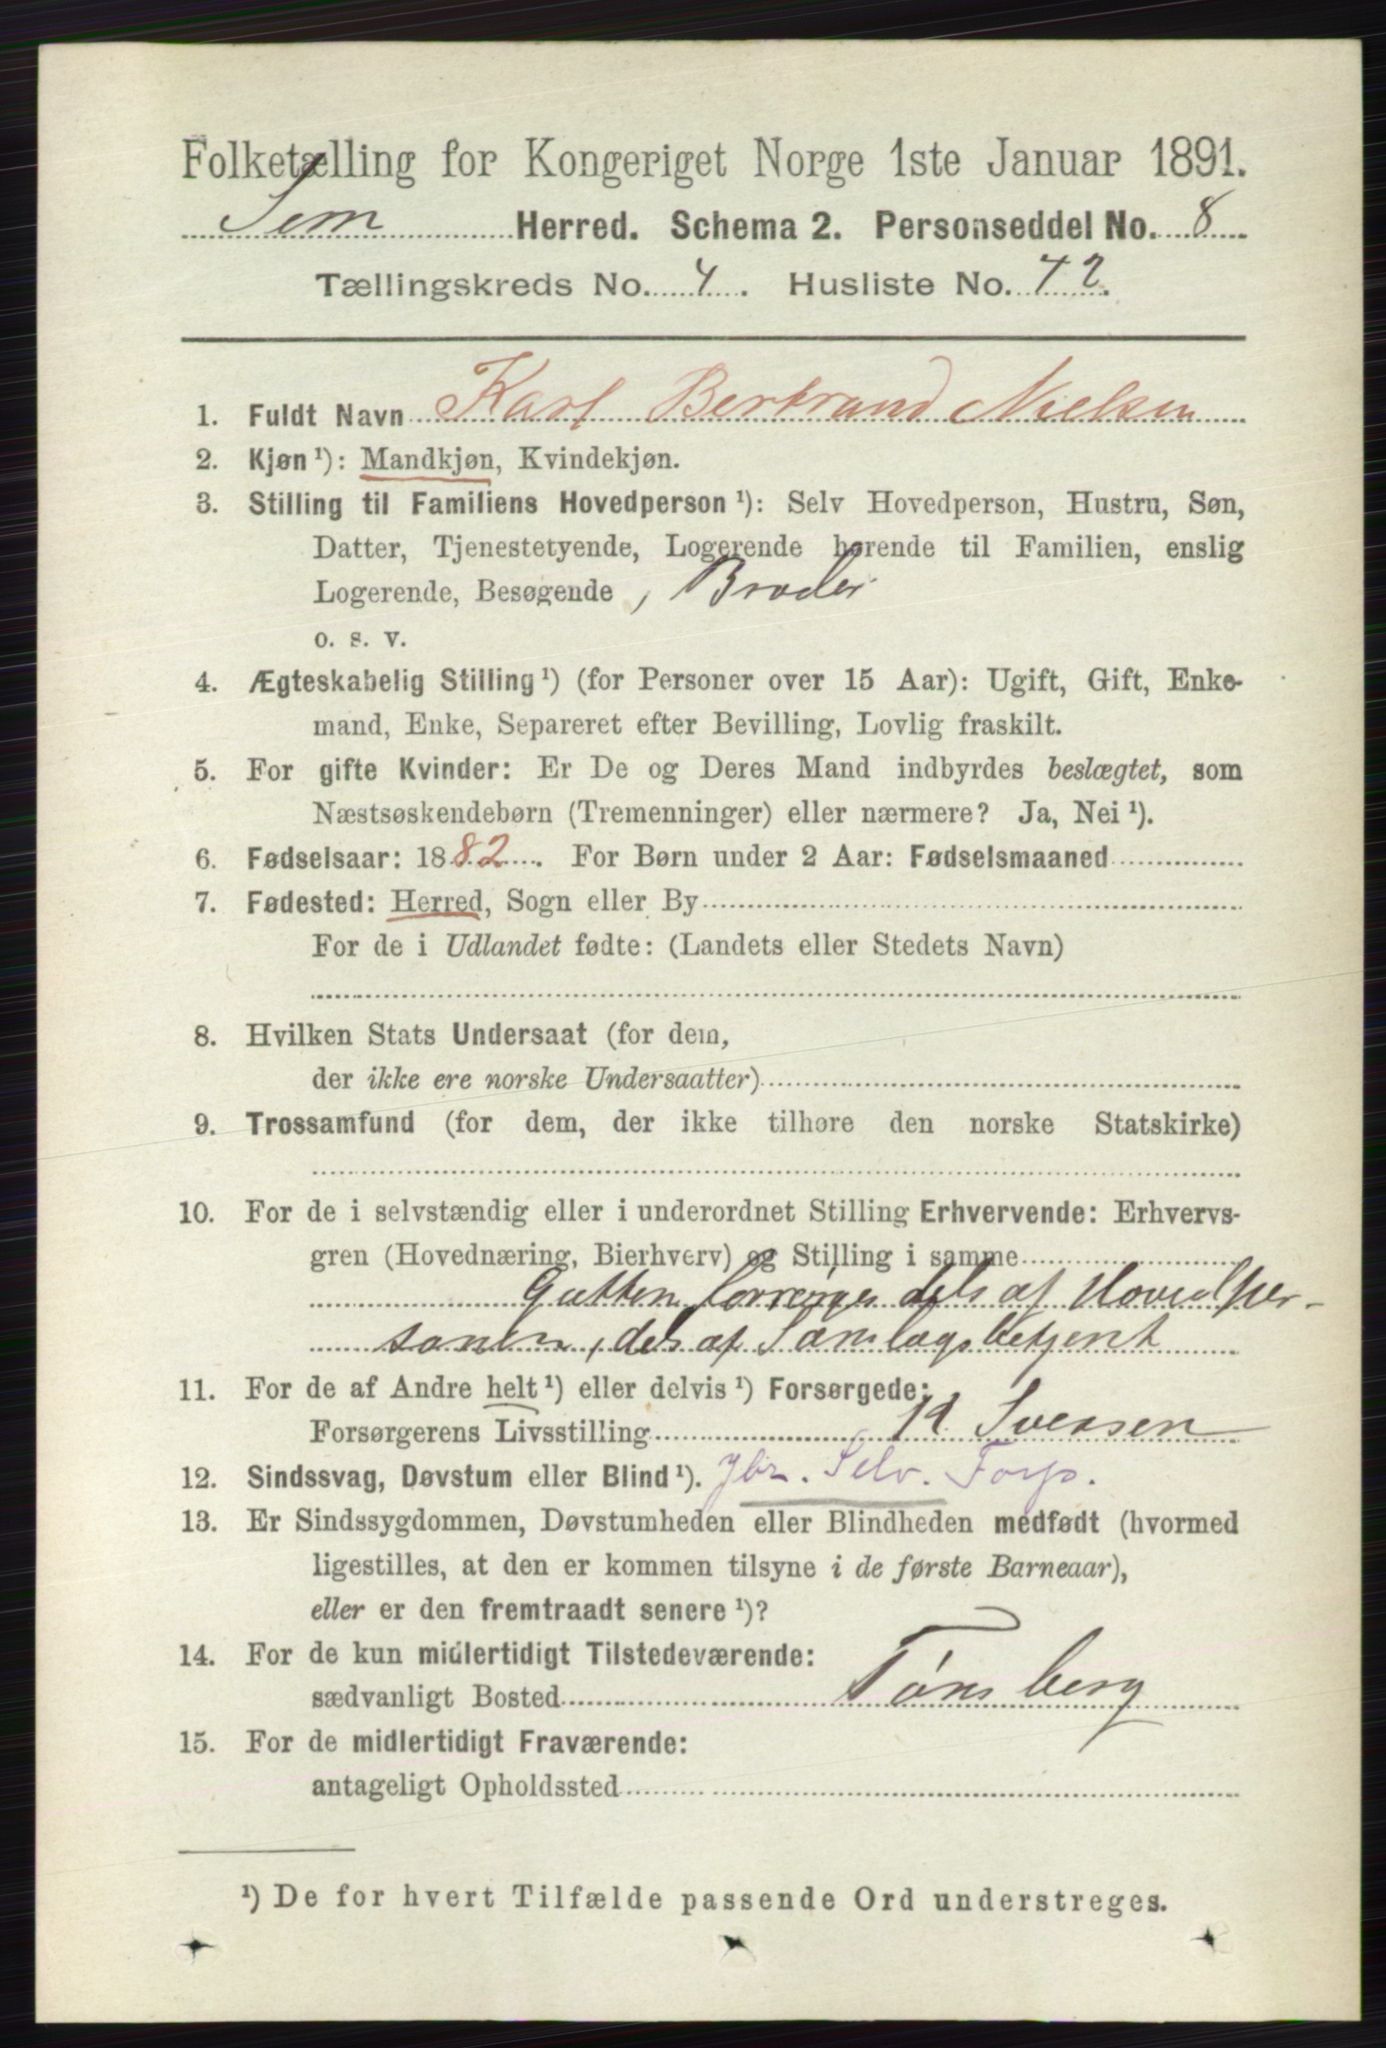 Folketælling for Kongeriget Norge 1ste Januar 1891.
Sem Herred. Schema 2. Personseddel No. 8
Tællingskreds No. 4. Husliste No. 42.
1. Fuldt Navn Karl Bertrand Nielsen
2. Kjøn ¹): Mandkjøn, Kvindekjøn.
3. Stilling til Familiens Hovedperson ¹): Selv Hovedperson, Hustru, Søn,
Datter, Tjenestetyende, Logerende hørende til Familien, enslig
Logerende, Besøgende, Broder
o. s. v.
4. Ægteskabelig Stilling ¹) (for Personer over 15 Aar): Ugift, Gift, Enke-
mand, Enke, Separeret efter Bevilling, Lovlig fraskilt.
5. For gifte Kvinder: Er De og Deres Mand indbyrdes beslægtet, som
Næstsøskendebørn (Tremenninger) eller nærmere? Ja, Nei ¹).
6. Fødselsaar: 1882. For Børn under 2 Aar: Fødselsmaaned
7. Fødested: Herred, Sogn eller By
For de i Udlandet fødte: (Landets eller Stedets Navn)
8. Hvilken Stats Undersaat (for dem,
der ikke ere norske Undersaatter)
9. Trossamfund (for dem, der ikke tilhøre den norske Statskirke)
10. For de i selvstændig eller i underordnet Stilling Erhvervende: Erhvervs-
gren (Hovednæring, Bierhverv) og Stilling i samme
Gutten forsørges dels af Hovedper-
sonen, dels af Samlagsbetjent
11. For de af Andre helt ¹) eller delvis ¹) Forsørgede:
Forsørgerens Livsstilling H. Svensen
12. Sindssvag, Døvstum eller Blind ¹). Selv. Fors.
13. Er Sindssygdommen, Døvstumheden eller Blindheden medfødt (hvormed
ligestilles, at den er kommen tilsyne i de første Barneaar),
eller er den fremtraadt senere ¹)?
14. For de kun midlertidigt Tilstedeværende:
sædvanligt Bosted Tønsberg
15. For de midlertidigt Fraværende:
antageligt Opholdssted
¹) De for hvert Tilfælde passende Ord understreges.